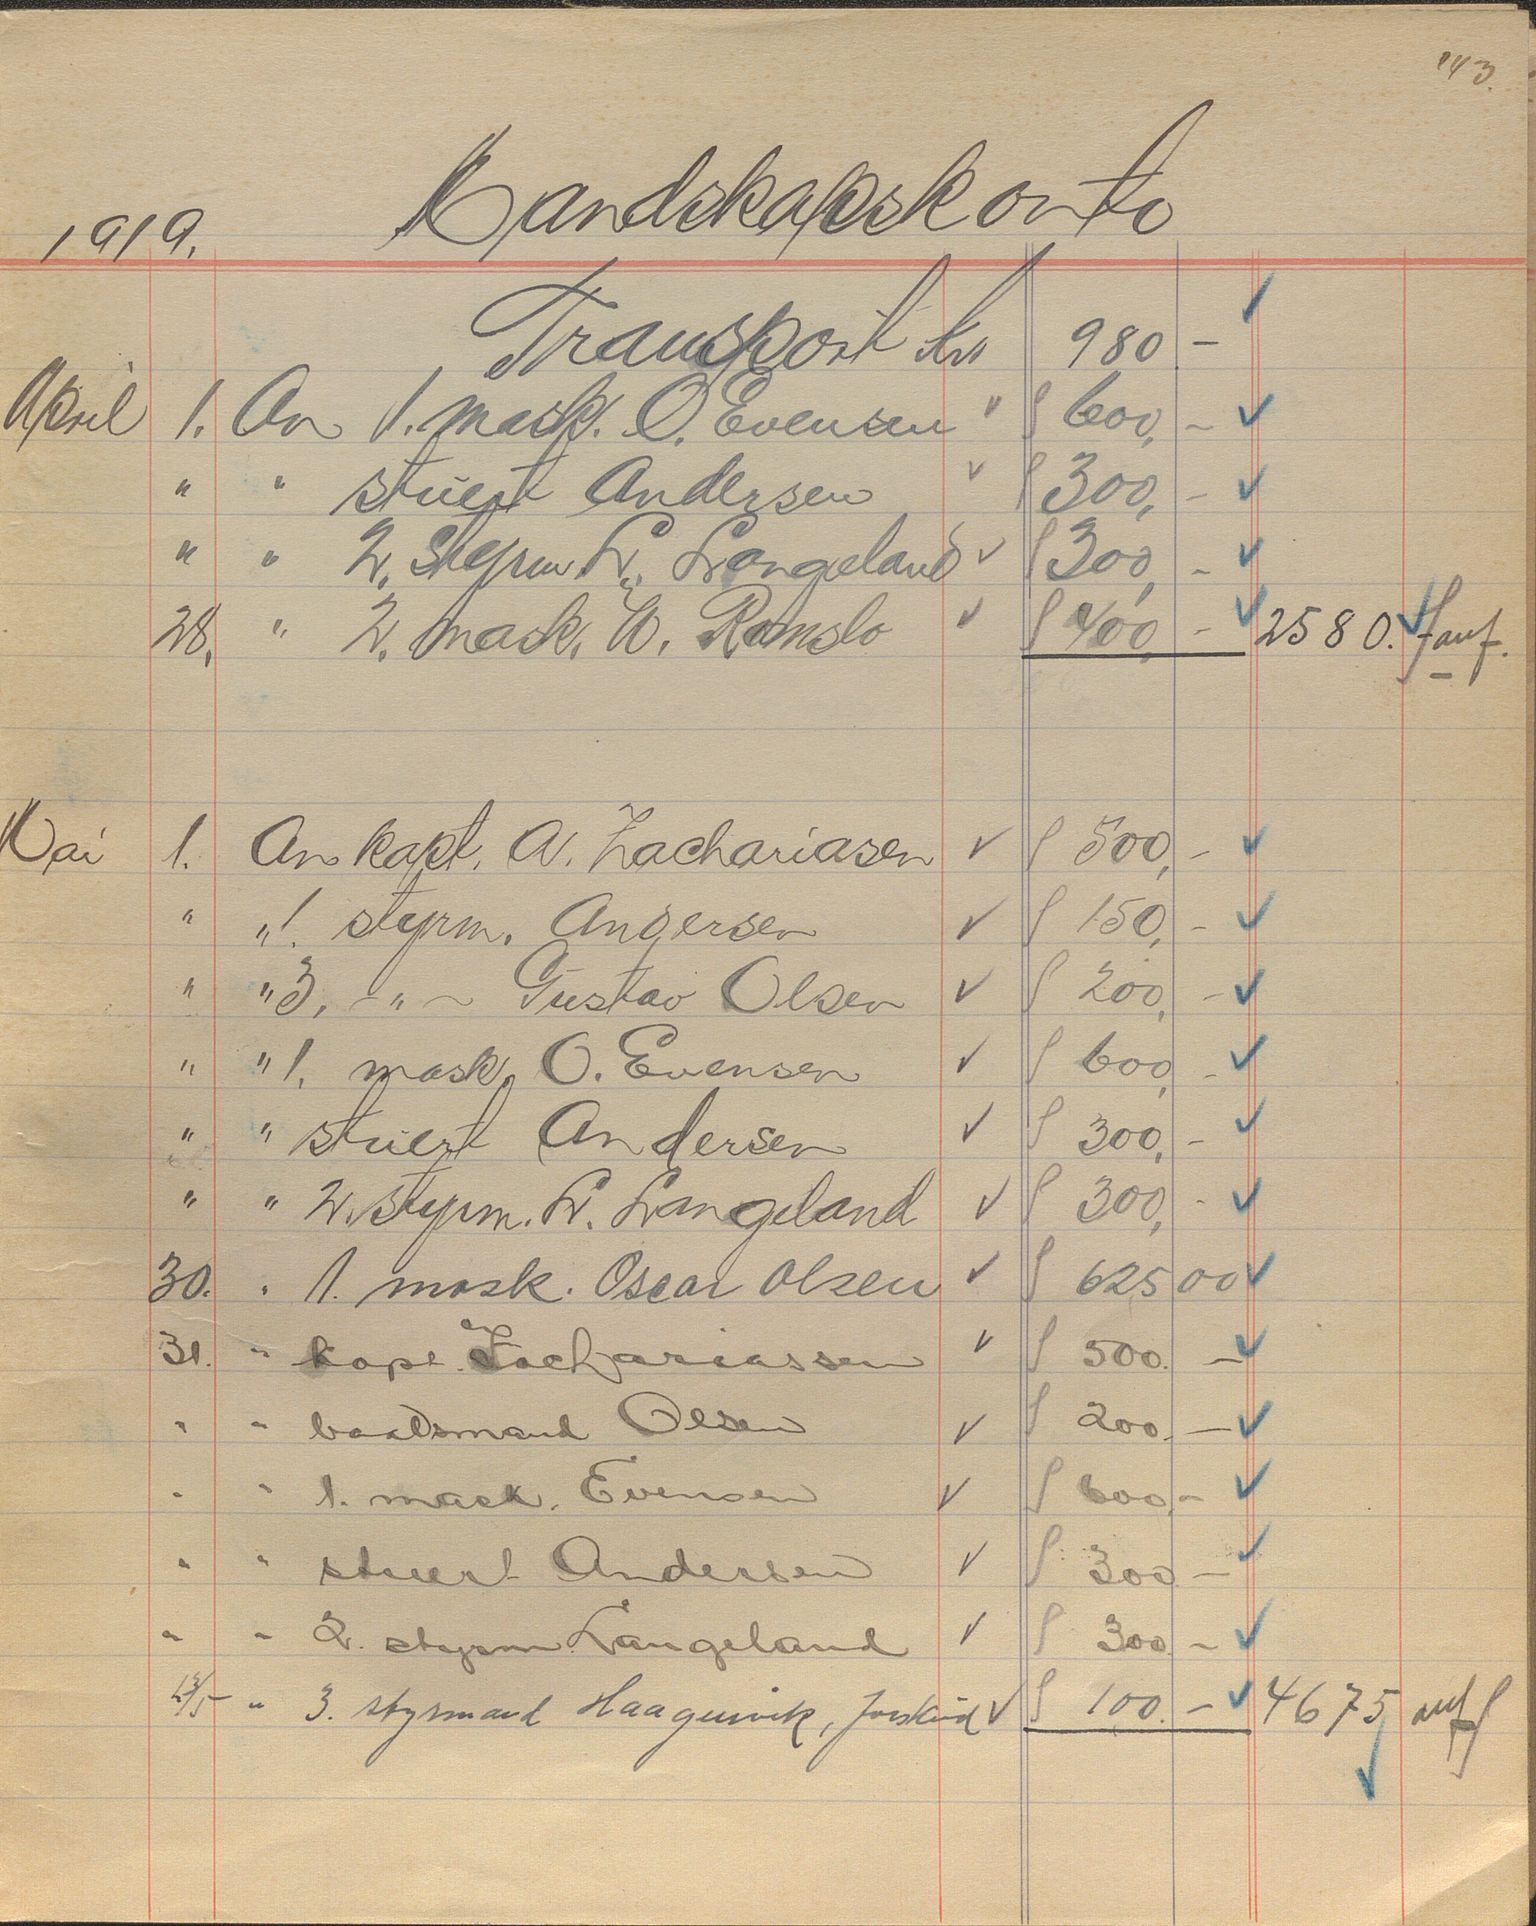 143.
Mandskapskonto
1919.
Transport Krs 980 -
April 1. An 1. mask. O. Evensen " 600, -
" " stuert Andersen " 300, -
" " 2. styrm. L. Langeland " 300, -
28. " 2. mask. Romslo " 400, - 2580.
Mai 1. An kapt. A. Zachariasen 500, -
" " 1. styrm. Andersen 150, -
" " 3. - " - Gustav Olsen 200, -
" " 1. mask. O. Evensen 600, -
" " stuert Andersen 300, -
" " 2. styrm. L. Langeland 300, -
30. " 1. mask. Oscar Olsen 625 00
31. " kapt. Zachariassen 500. -
" " baadsmand Olsen 200. -
" " 1. mask. Evensen 600, -
" " stuert Andersen 300 -
" " 2. styrm Langeland 300 -
" 3. styrmand Haagensvik, forskud 100. - 4675